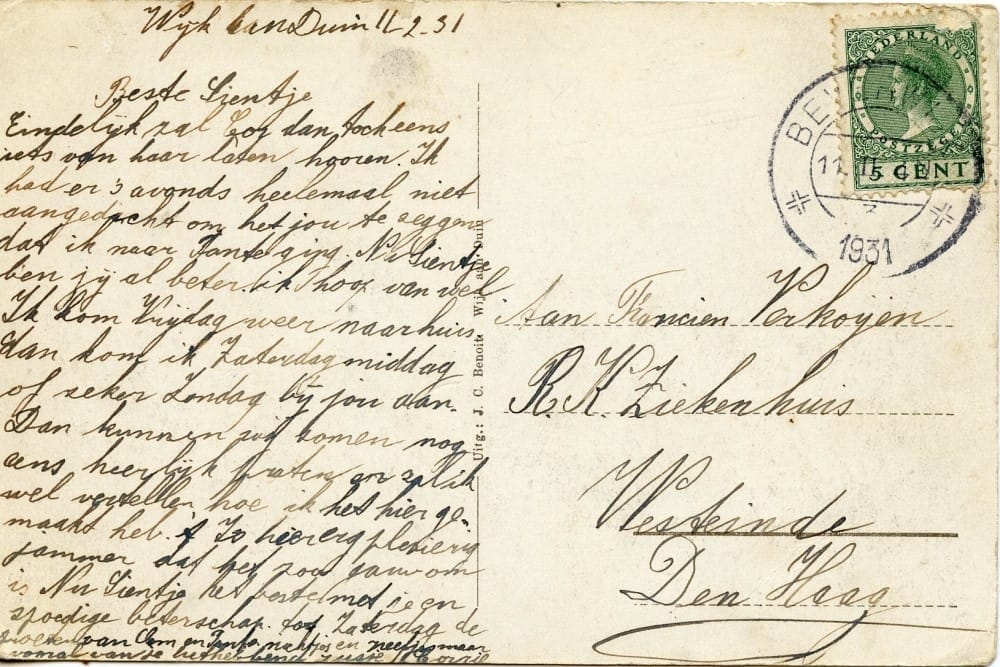 Wijk aan Duin 11-2-31
Beste Sientje
Eindelijk zal Cor dan toch eens
iets van haar laten hooren. Ik
had er 's avonds heelemaal niet
aangedacht om het jou te zeggen
dat ik naar Tante ging. Nu Sientje
ben jij al beter ik hoop van wel
Ik kom Vrijdag weer naar huis
dan kom ik Zaterdag middag
of zeker Zondag bij jou aan.
Dan kunnen wij samen nog
eens heerlijk praten en zal ik
wel vertellen hoe ik het hier ge-
maakt heb. 't Is hier erg plezierig
jammer dat het zoo gauw om
is Nu Sientje het beste met je en
spoedige beterschap. tot Zaterdag de
groeten van Oom en Tante
Uitg.: J. C. Benoits Wijk aan Duin
NEDERLAND
POSTZEGEL
5 CENT
BEV
11 II
1931
Aan Francien Verkoyen
R.K. Ziekenhuis
Westeinde
Den Haag